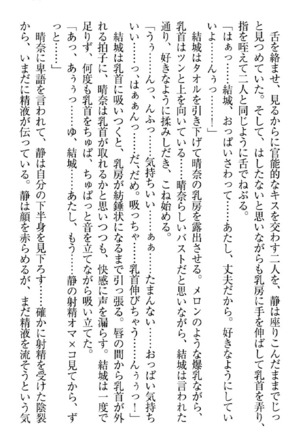 舌を絡ませ、見るからに官能的なキスを交わす二人を、静は座りこんだままでじっ
と見つめていた。そして、はしたないと思いながらも乳房に手を伸ばして乳首を弄り、
指を咥えて二人と同じように舌でねぶる。
「はぁっ……結城、おっぱいさわって……あたし、丈夫だから。好きなようにして
いよぉ……！」
　結城はタオルを引き下げて晴奈の乳房を露出させる。メロンのような爆乳ながら、
乳首はツンと上を向いている……晴奈らしいバストだと思いながら、結城は求められた
通り、好きなように揉みしだき、こね始める。
「うぅ……んっ、んふっ……気持ちいい……ぁぁ……たまんない……おっぱい気持ち
いっ……。はぁぁんっ……だ、だめ。吸っちゃ……乳首伸びちゃう……んぅぅっ！」
　結城は乳首に吸いつくと、乳房が紡錘状になるまで引っ張る。唇の間から乳首が外
れる拍子に、晴奈は乳首が取れるかと思いつつも、快感に声を漏らす。結城は一度で
足りず、何度も乳首をちゅぱ、ちゅぱっと音を立てながら吸い立てた。
「あっ、あぁっ……ゆ、結城……あたし、もう……静の射精オマ×コ見てから、ず
っと……」
　晴奈に卑語を言われて、静は自分の下半身を見下ろす……確かに射精を受けた陰裂
から、いまだに精液が伝っている。静は顔を赤らめるが、まだ精液を流しそう